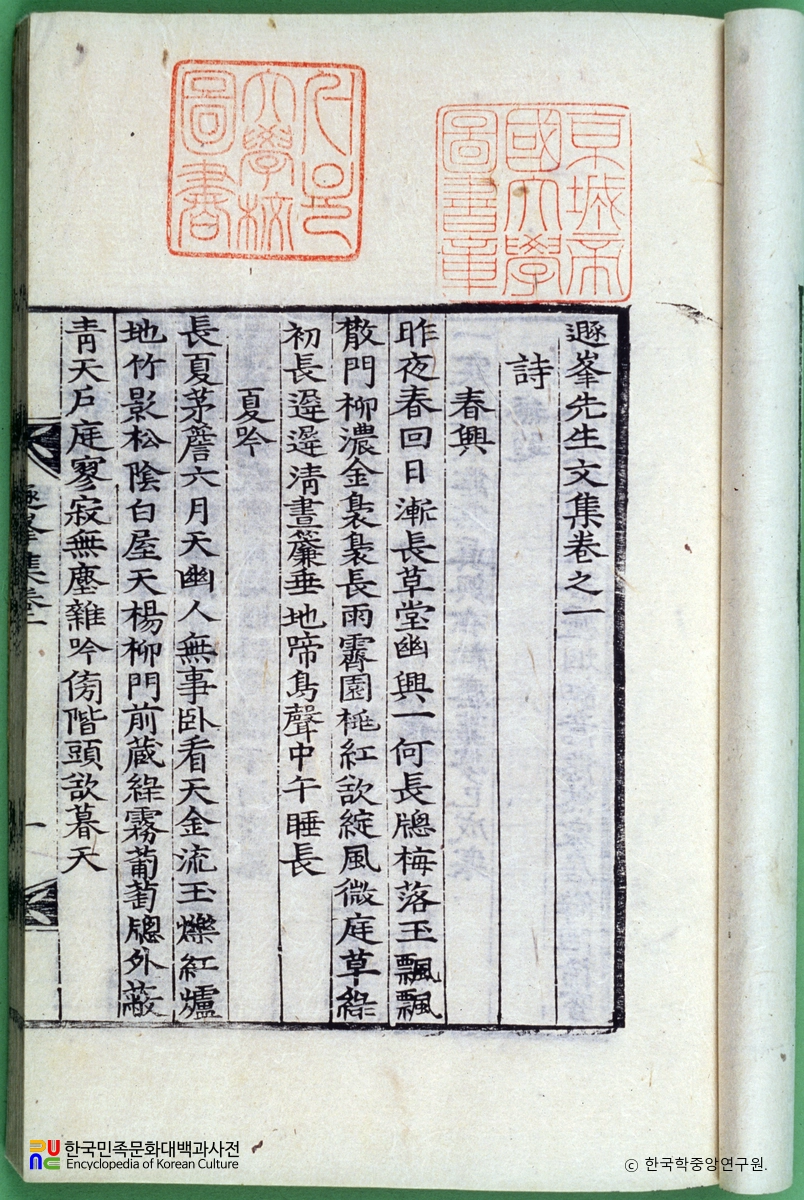 京城帝
國大學
圖書章
서울
大學校
圖書
遯峯先生文集卷之一
詩
春興
昨夜春回日漸長草堂幽興一何長牕梅落玉飄飄
散門柳濃金裊裊長雨霽園桃紅欲綻風微庭草綠
初長遲遲淸晝簾垂地啼鳥聲中午睡長
夏吟
長夏茅簷六月天幽人無事臥看天金流玉爍紅爐
地竹影松陰白屋天楊柳門前藏綠霧葡萄牕外蔽
靑天戶庭寥寂無塵雜吟傍階頭欲暮天
遯峯集卷一
一
한국민족문화대백과사전
Encyclopedia of Korean Culture
ⓒ 한국학중앙연구원.